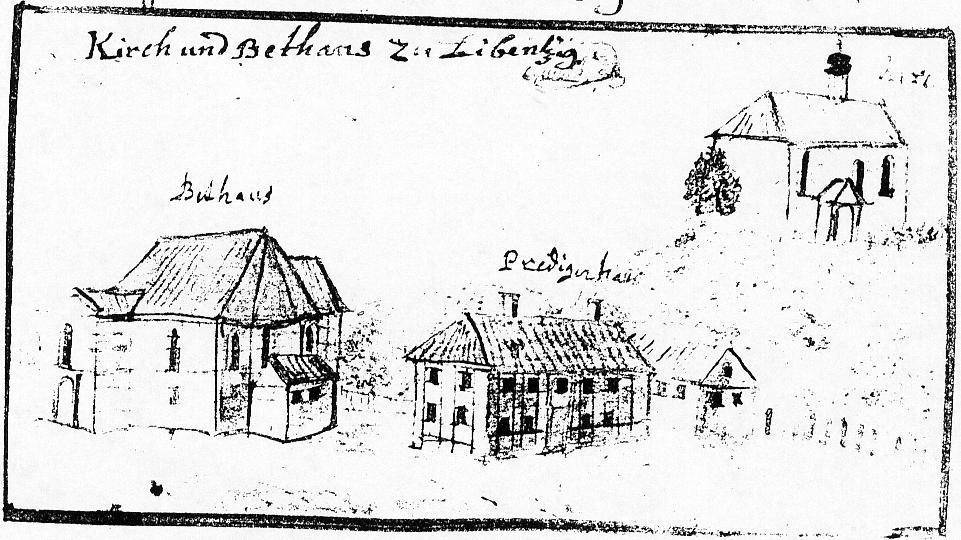 Kirch und Bethaus Zu Libentzig.
Bethaus
Predigerhaus